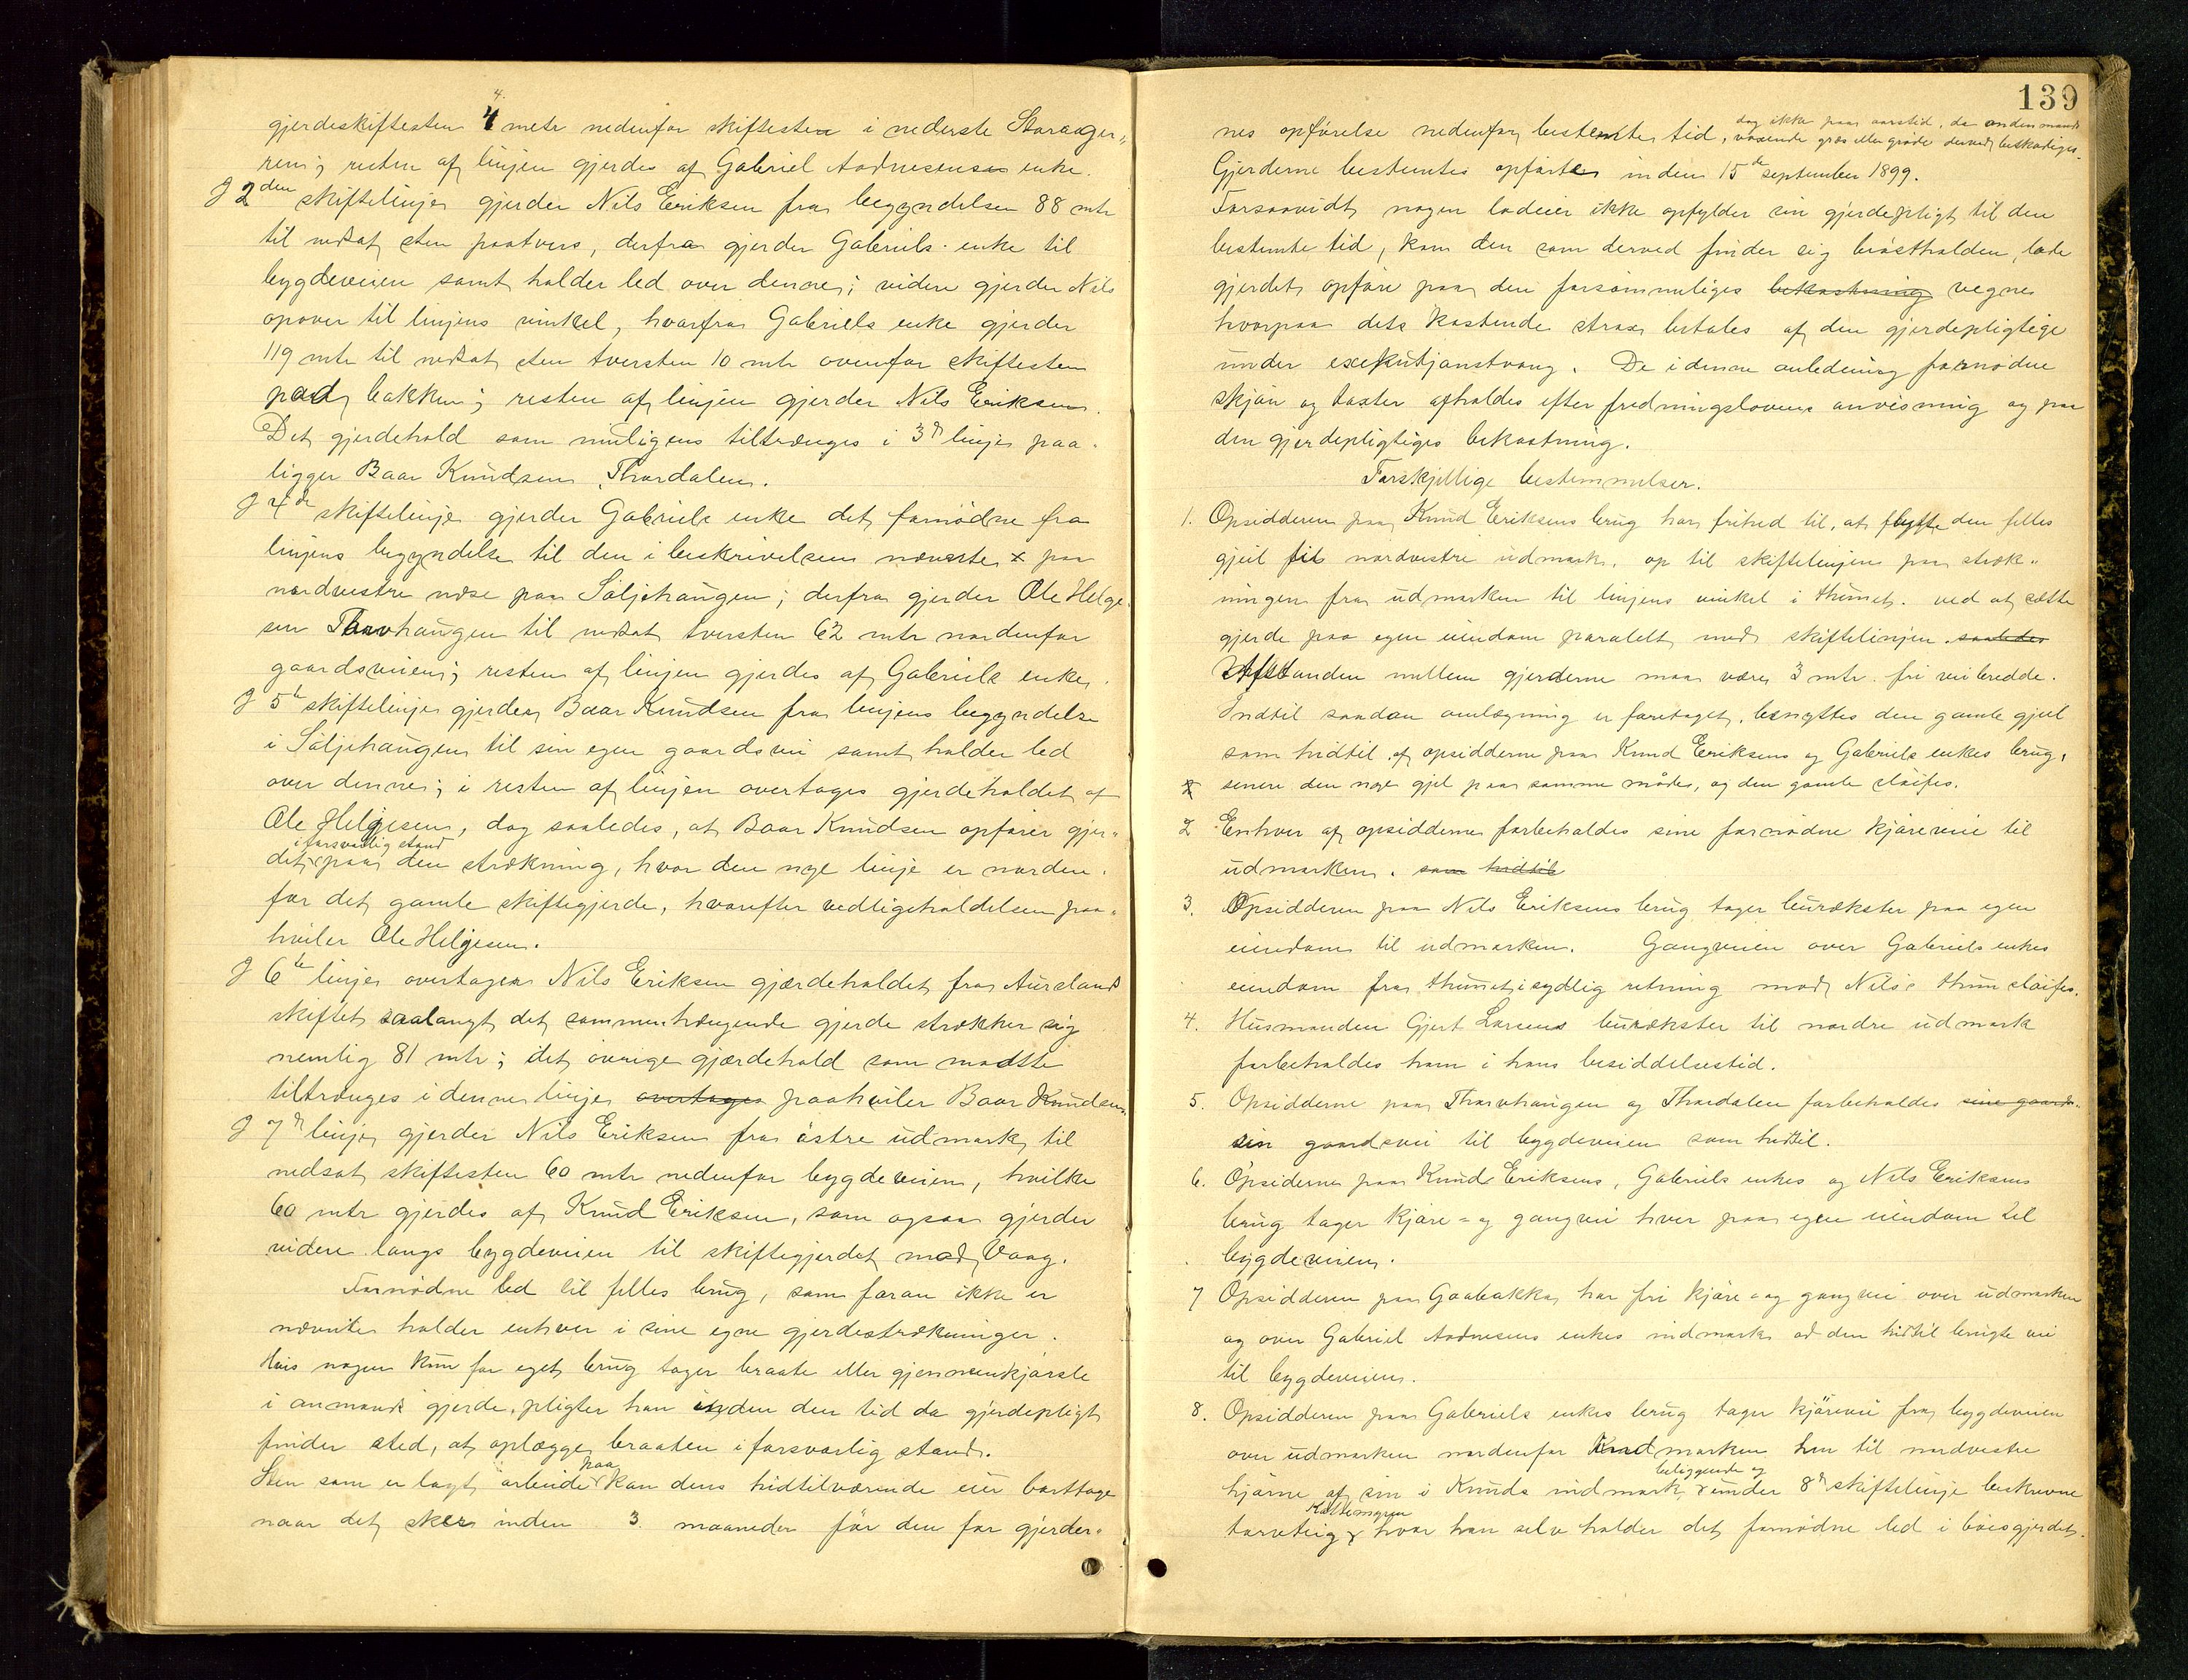 gjerdeskiftesten 4 metr nedenfor skiftesten i nederste Storaager-
ren; resten af linjen gjerdes af Gabriel Aadnesens enke.
J 2den skiftelinje gjerder Nils Eriksen fra begyndelsen 88 mtr
til nedsat sten paatvers, derfra gjerder Gabriels enke til
bygdeveien samt holder led over denne; videre gjerder Nils
opover til linjens vinkel, hvorfra Gabriels enke gjerder
119 mtr til nedsat sten tversten 10 mtr ovenfor skiftesten
paa bakken; resten af linjen gjerder Nils Eriksen.
Det gjerdehold som muligens tiltrænges i 3d linje paa-
ligger Baar Knudsen Thordalen.
J 4de skiftelinje gjerder Gabriels enke det fornødne fra
linjens begyndelse til den i beskrivelsen nævnte x paa
nordvestre næse paa Saljehaugen; derfra gjerder Ole Helge-
sen Thorvhaugen til nedsat tversten 62 mtr nordenfor
gaardsveien; resten af linjen gjerdes af Gabriels enke.
J 5te skiftelinje gjerder Baar Knudsen fra linjens begyndelse
i Saljehaugen til sin egen gaardsvei samt holder led
over denne; i resten af linjen overtages gjerdeholdet af
Ole Helgesen, dog saaledes, at Baar Knudsen opfører gjer-
i forsvarlig stand
det paa den strækning, hvor den nye linje er norden-
for det gamle skiftegjerde, hvorefter vedligeholdelsen paa-
hviler Ole Helgesen.
J 6te linje overtager Nils Eriksen gjærdeholdet fra Aursland
skiftet saalangt det sammenhængende gjerde strækker sig
nemlig 81 mtr; det øvrige gjærdehold som maatte
tiltrænges i denne linje overtages paahviler Baar Knudsen
J 7d linje gjerder Nils Eriksen fra østre udmark til
nedsat skiftesten 60 mtr nedenfor bygdeveien, hvilke
60 mtr gjerdes af Knud Eriksen, som ogsaa gjerder
videre langs bygdeveien til skiftegjerdet mod Vaag.
Fornødne led til felles brug, som foran ikke er
nævnte holder enhver i sine egne gjerdestrækninger.
Hvis nogen kun for eget brug tager braate eller gjennemkjørsle
i anmands gjerde, pligter han inden den tid da gjerdepligt
finder sted, at oplægge braaten i forsvarlig stand.
paa
Sten som er lagt arbeide kan dens hidtilværende eier borttage
naar det sker inden 3 maaneder før den for gjerder-
139
dog ikke paa aarstid, da andenmands
nes opførelse nedenfor bestemte tid, voxende græs eller grøde derved beskadiges.
Gjerderne bestemtes opførte inden 15de september 1899.
Forsaavidt nogen lodeier ikke opfylder sin gjerdepligt til den
bestemte tid, kan den som derved finder sig brøstholden, lade
gjerdet opføre paa den forsømmeliges bekostning vegne
hvorpaa dets kostende strax betales af den gjerdepligtige
under exekutjonstvang. De i denne anledning fornødne
skjøn og taxter afholdes efter fredningslovens anvisning og paa
den gjerdepligtiges bekostning.
Forskjellige bestemmelser.
1. Opsidderen paa Knud Eriksens brug har frihed til, at flytte den felles
gjeil til nordvestre udmark, op til skiftelinjen paa stræk-
ningen fra udmarken til linjens vinkel i thunet. ved at sætte
gjerde paa egen eiendom paralelt med skiftelinjen. saaledes
Afstanden mellem gjerderne maa være 3 mtr. fri veibredde.
Indtil saadan omlægning er foretaget, benyttes den gamle gjeil
som hidtil af opsidderne paa Knud Eriksens og Gabriels enkes brug,
senere den nye gjeil paa samme maade, og den gamle sløifes.
2 Enhver af opsidderne forbeholdes sine fornødne kjøreveie til
udmarken. som hidtil
3. Opsidderen paa Nils Eriksens brug tager burækster paa egen
eiendom til udmarken. Gangveien over Gabriels enkes
eiendom fra thunet i sydlig retning mod Nils's thun sløifes.
4. Husmanden Gjert Larsens burækster til nordre udmark
forbeholdes ham i hans besiddelsestid.
5. Opsidderne paa Thorvhaugen og Thordalen forbeholdes sine gaards-
sin gaardsvei til bygdeveien som hidtil.
6. Opsiderne paa Knud Eriksens, Gabriels enkes og Nils Eriksens
brug tager kjøre- og gangvei hver paa egen eiendom til
bygdeveien.
7 Opsidderen paa Gaabakka har fri kjøre- og gangvei over udmarken
og over Gabriel Aadnesens enkes indmark ad den hidtil brugte vei
til bygdeveien.
8. Opsidderen paa Gabriels enkes brug tager kjørevei fra bygdeveien
over udmarken nordenfor indmarken hen til nordvestre
beliggende og
hjørne af sin i Knuds indmark, under 8d skiftelinje beskrevne
torvteig hvor han selv holder det fornødne led i bøesgjerdet.